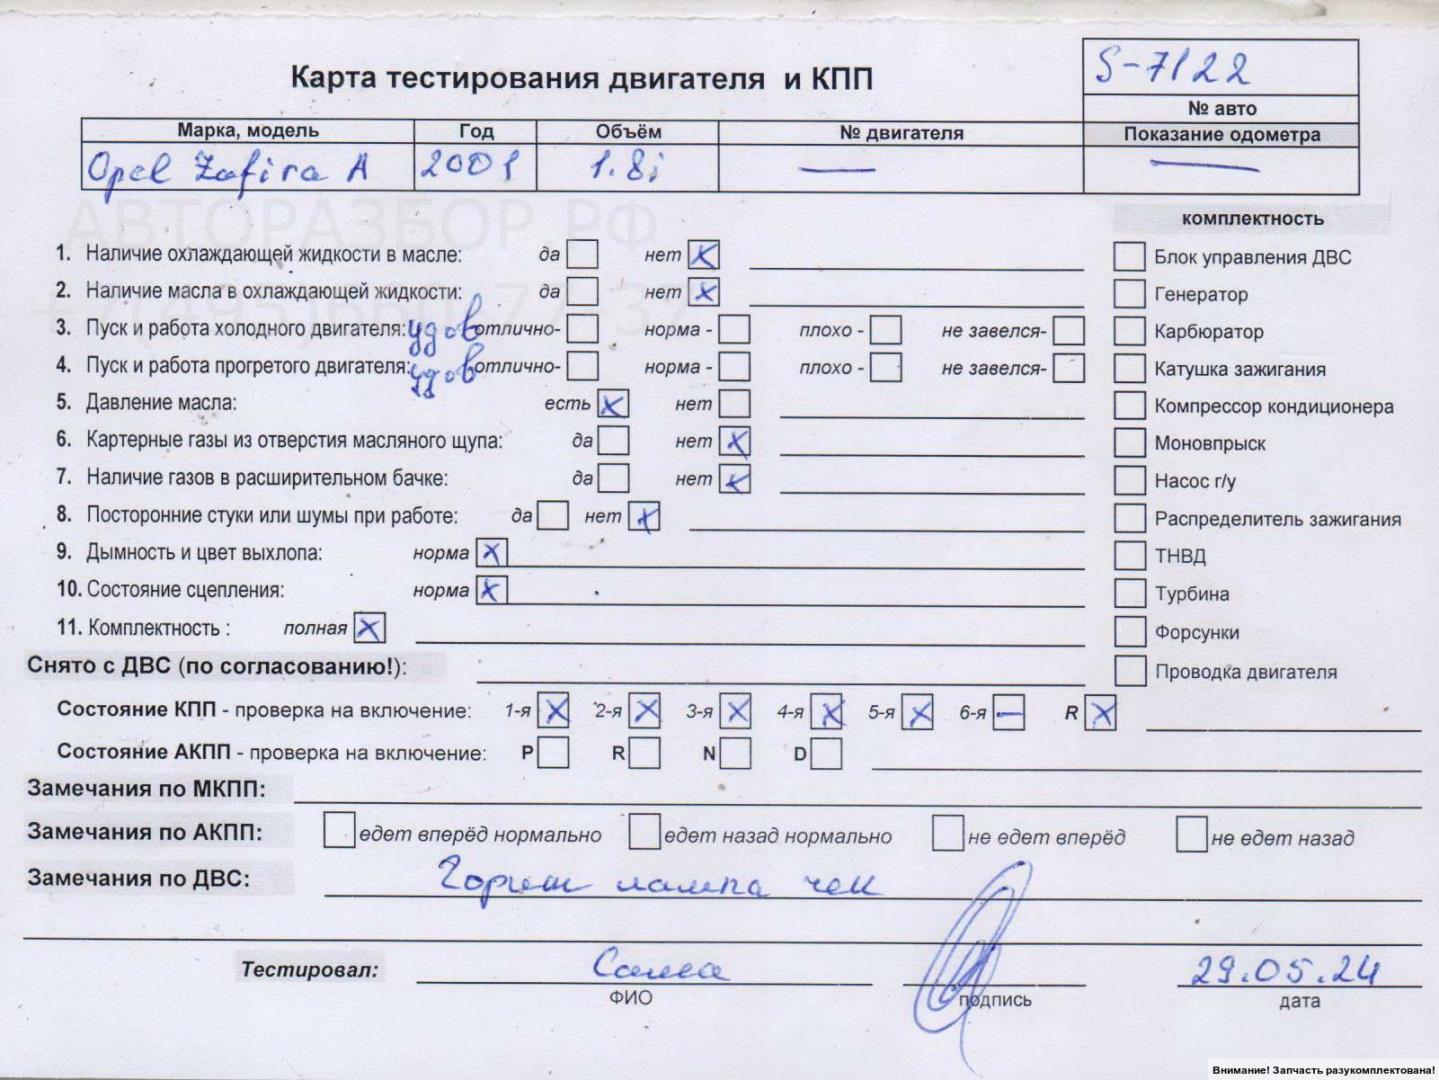 S-7122
Карта тестирования двигателя и КПП
№ авто
Марка, модель Год Объём № двигателя Показание одометра
Opel Zafira A 2001 1.8i — —
АВТОРАЗБОР.РФ
комплектность
1. Наличие охлаждающей жидкости в масле: да нет x Блок управления ДВС
2. Наличие масла в охлаждающей жидкости: да нет x Генератор
3. Пуск и работа холодного двигателя: удов отлично- норма - плохо - не завелся- Карбюратор
4. Пуск и работа прогретого двигателя: удов отлично- норма - плохо - не завелся- Катушка зажигания
5. Давление масла: есть x нет Компрессор кондиционера
6. Картерные газы из отверстия масляного щупа: да нет x Моновпрыск
7. Наличие газов в расширительном бачке: да нет x Насос г/у
8. Посторонние стуки или шумы при работе: да нет x Распределитель зажигания
9. Дымность и цвет выхлопа: норма x ТНВД
10. Состояние сцепления: норма x Турбина
11. Комплектность : полная x Форсунки
Снято с ДВС (по согласованию!): Проводка двигателя
Состояние КПП - проверка на включение: 1-я x 2-я x 3-я x 4-я x 5-я x 6-я — R x
Состояние АКПП - проверка на включение: P R N D
Замечания по МКПП:
Замечания по АКПП: едет вперёд нормально едет назад нормально не едет вперёд не едет назад
Замечания по ДВС: Горит лампа чек
Тестировал: 29.05.24
ФИО подпись дата
Внимание! Запчасть разукомплектована!